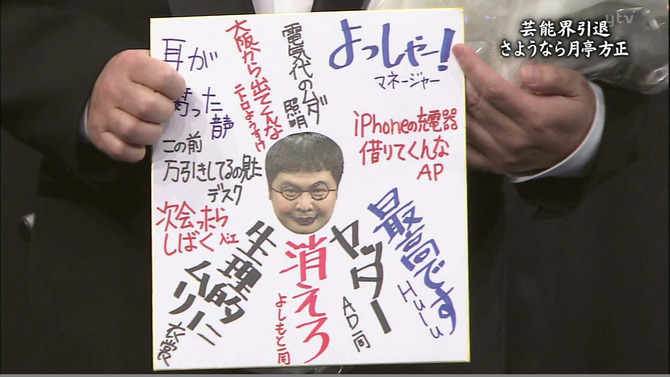 ytv
芸能界引退
さようなら月亭方正
よっしゃー!
マネージャー
電気代のムダ
照明
大阪から出てくんな
耳が
腐った
音声
iPhoneの充電器
借りてくんな
AP
この前
万引きしてるの見た
デスク
次会ったら
しばく
最高です
Hulu
ヤッター
AD一同
消えろ
よしもと一同
生理的に
ムリー
衣裳